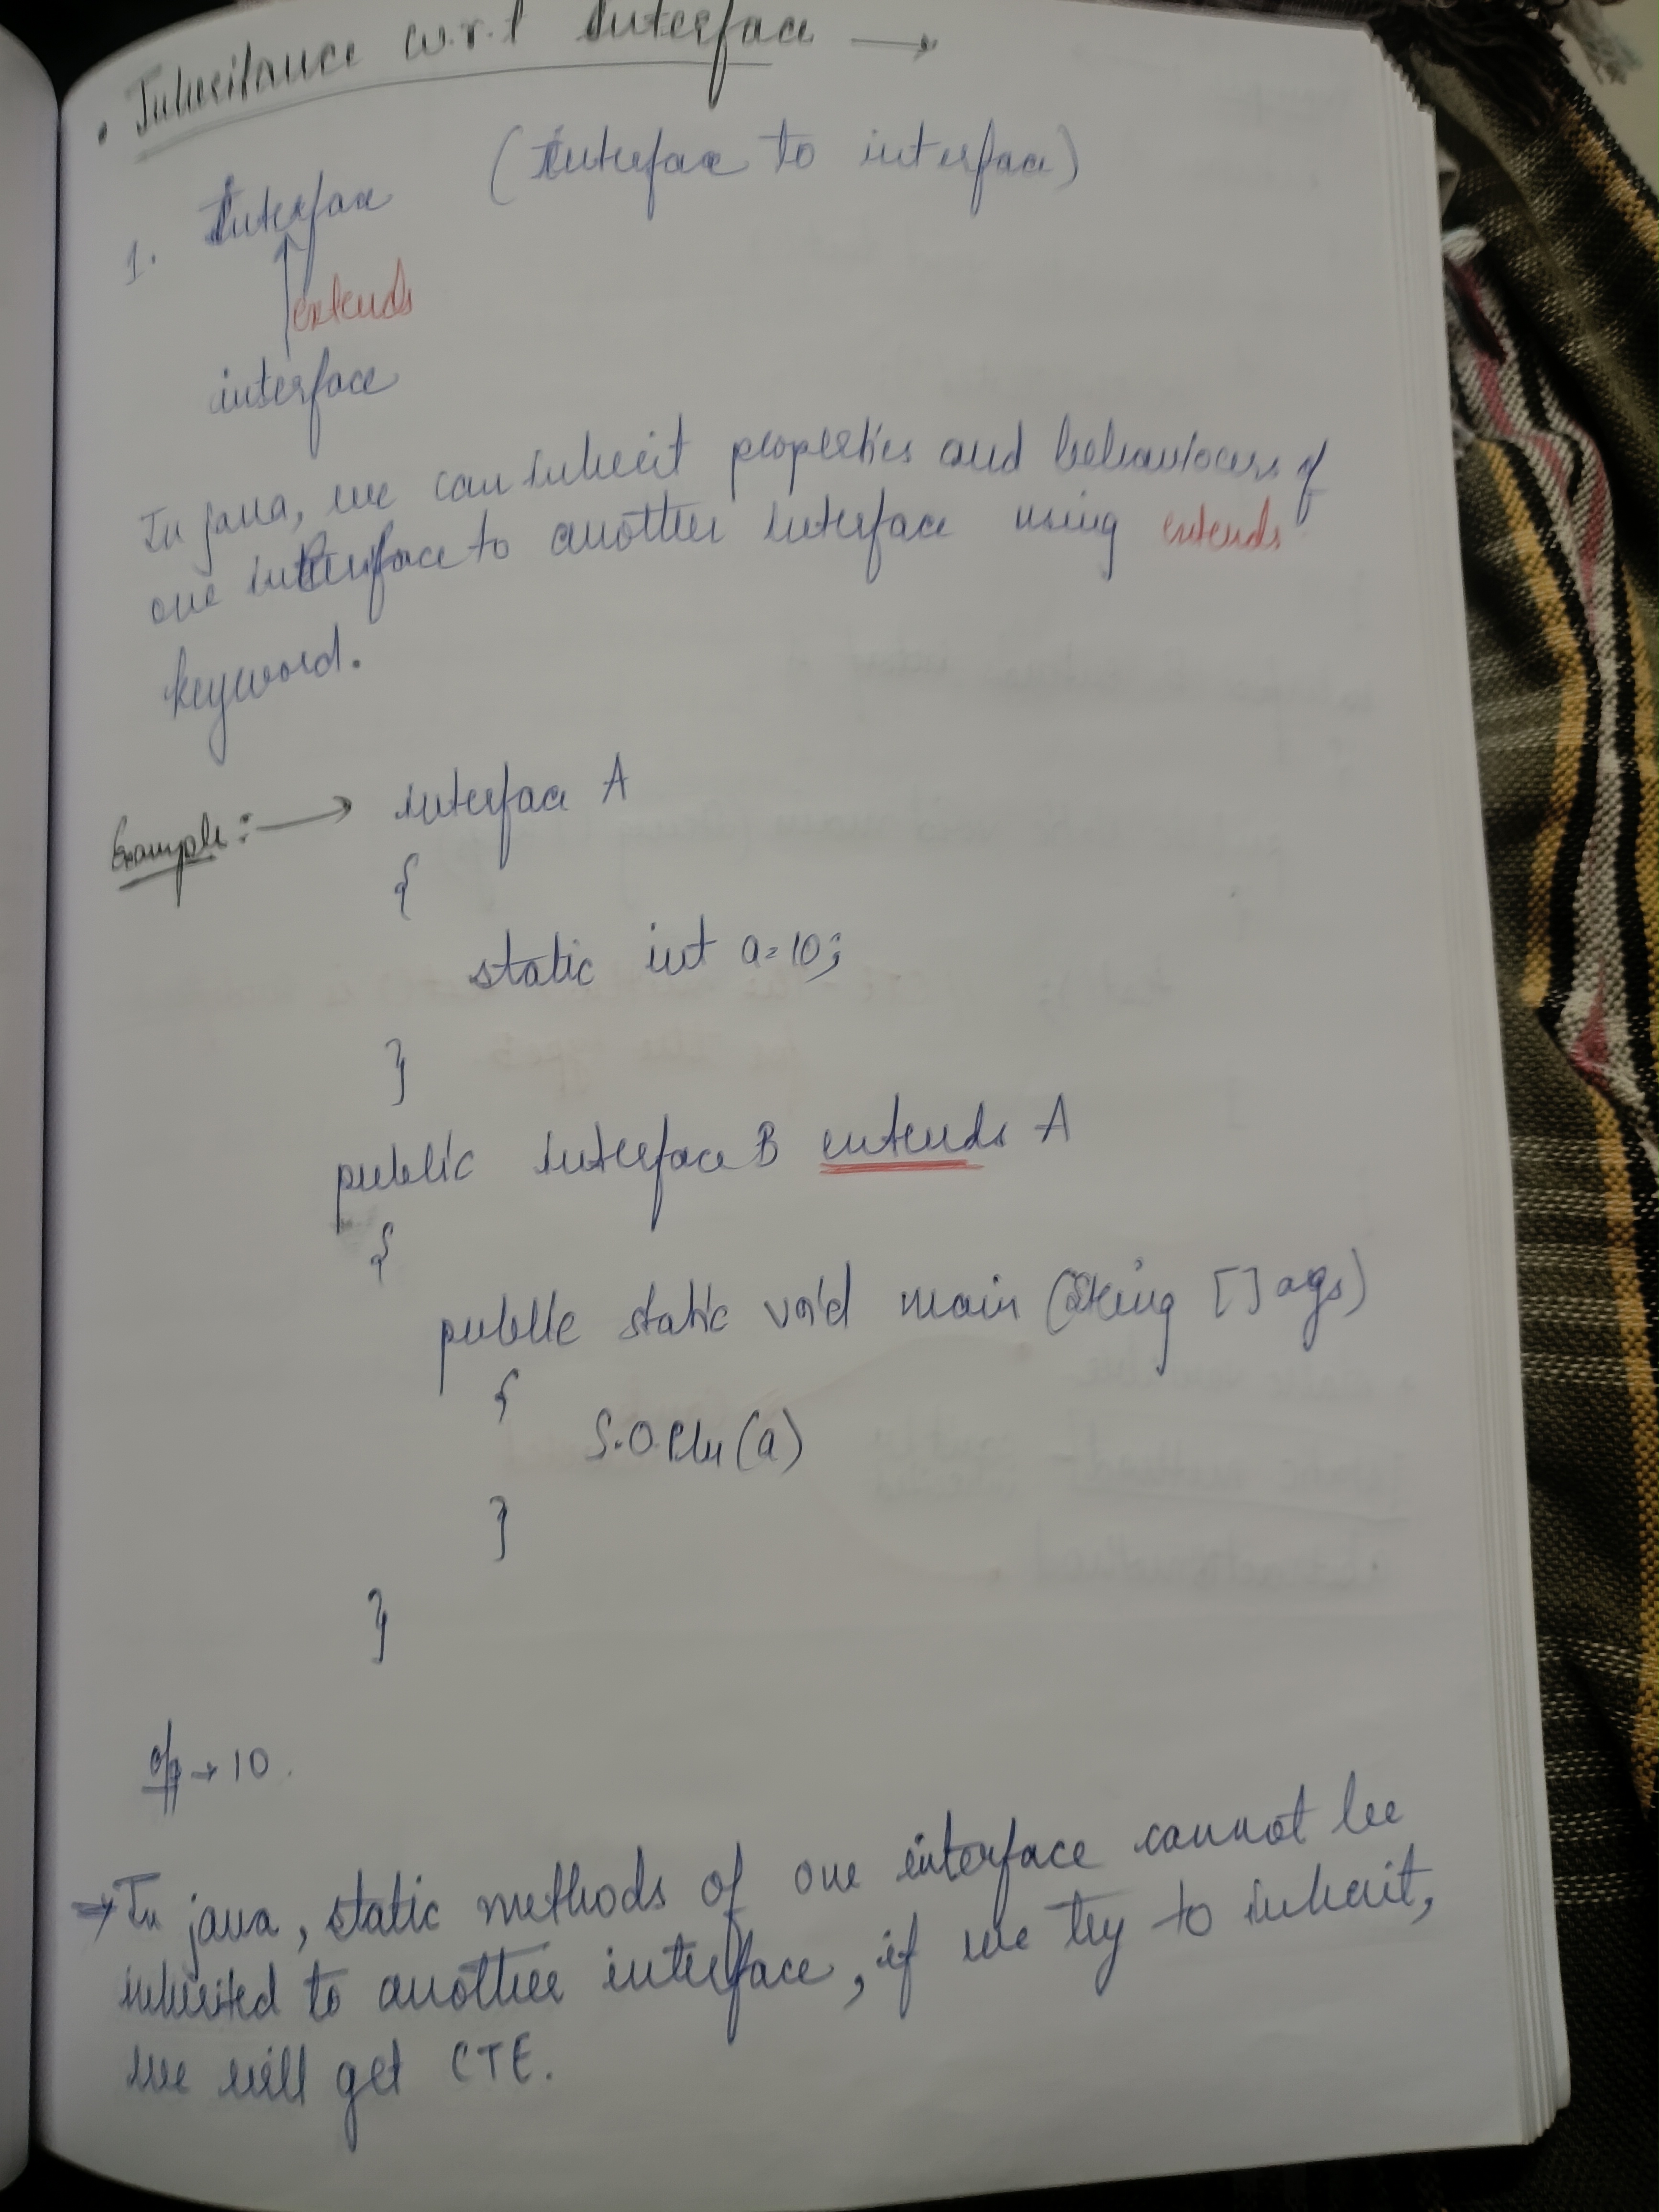 • Inheritance w.r.t Interface →
1. Interface (Interface to interface)
extends
interface
In java, we can inherit properties and behaviours of
one interface to another interface using extends
keyword.
Example: → interface A
{
static int a=10;
}
public interface B extends A
{
public static void main (String [] ags)
{
S.O.Pln(a)
}
}
o/p → 10.
→ In java, static methods of one interface cannot be
inherited to another interface, if we try to inherit,
we will get CTE.